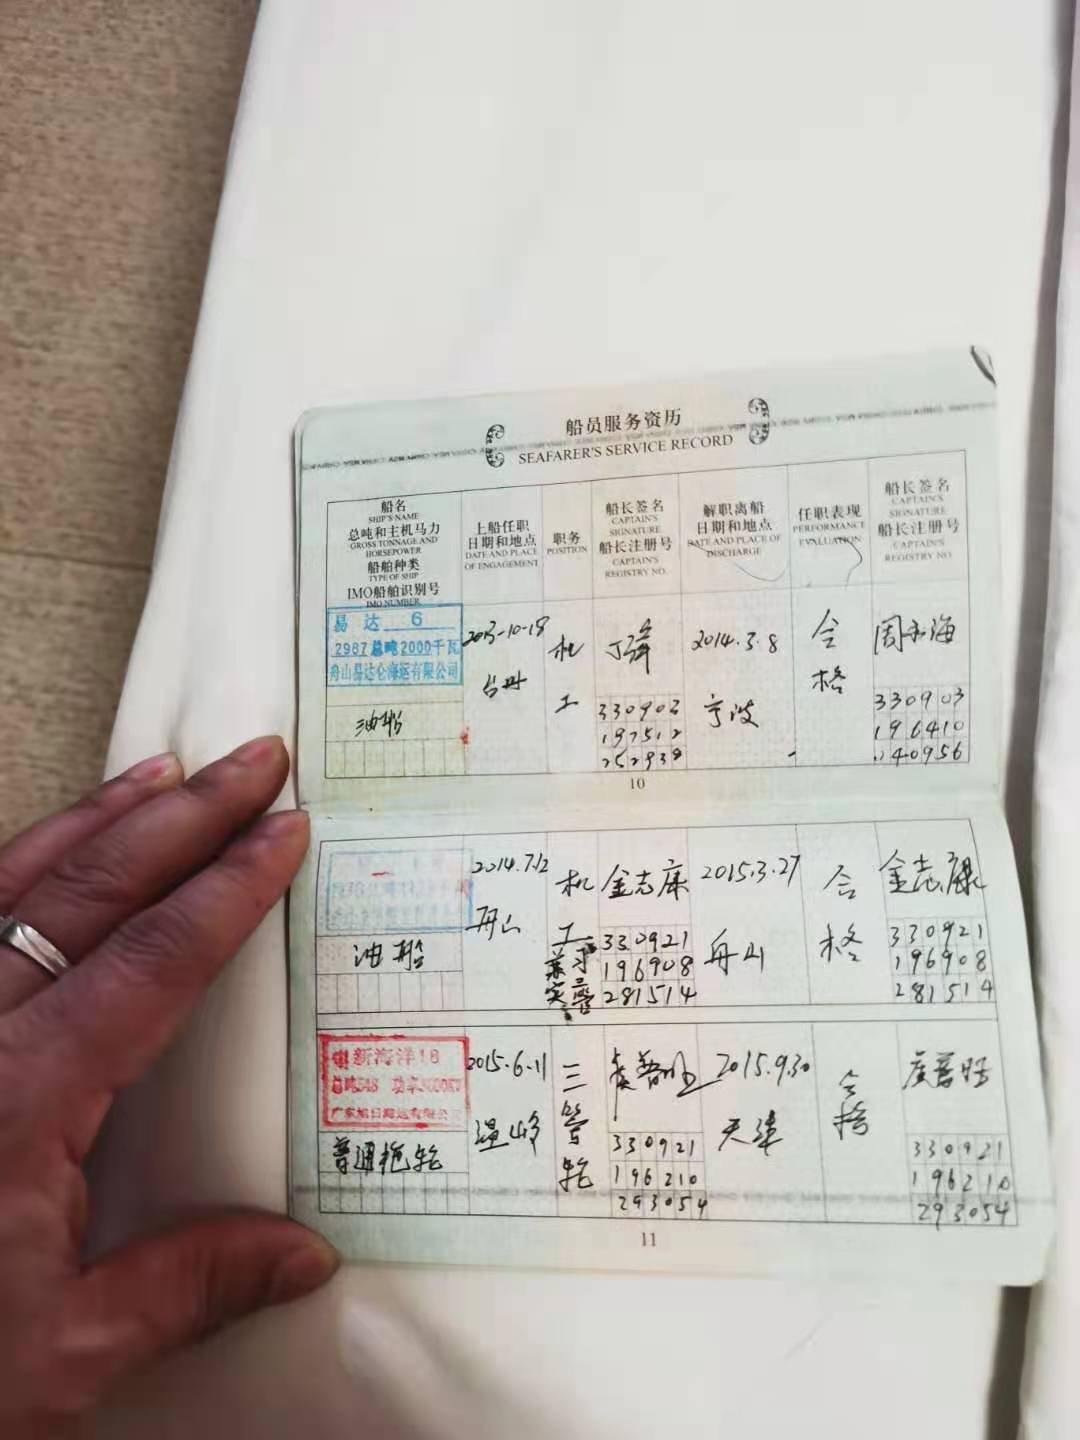 船员服务资历
SEAFARER'S SERVICE RECORD
船名
SHIP'S NAME
总吨和主机马力
GROSS TONNAGE AND
HORSEPOWER
船舶种类
TYPE OF SHIP
IMO船舶识别号
IMO NUMBER
上船任职
日期和地点
DATE AND PLACE
OF ENGAGEMENT
职务
POSITION
船长签名
CAPTAIN'S
SIGNATURE
船长注册号
CAPTAIN'S
REGISTRY NO.
解职离船
日期和地点
DATE AND PLACE OF
DISCHARGE
任职表现
PERFORMANCE
EVALUATION
船长签名
CAPTAIN'S
SIGNATURE
船长注册号
CAPTAIN'S
REGISTRY NO.
易达 6
2987总吨2000千瓦
舟山易达仑海运有限公司
油船
2013-10-18
台州
机
工
330902
197512
2014.3.8
宁波
合
格
330903
196410
040956
10
油船
2014.7.12
舟山
机
工
金志康
330921
196908
281514
2015.3.27
舟山
合
格
金志康
330921
196908
281514
新海洋18
普通拖轮
2015.6.11
三
管
轮
330921
196210
293054
2015.9.30
天津
合
格
330921
196210
293054
11